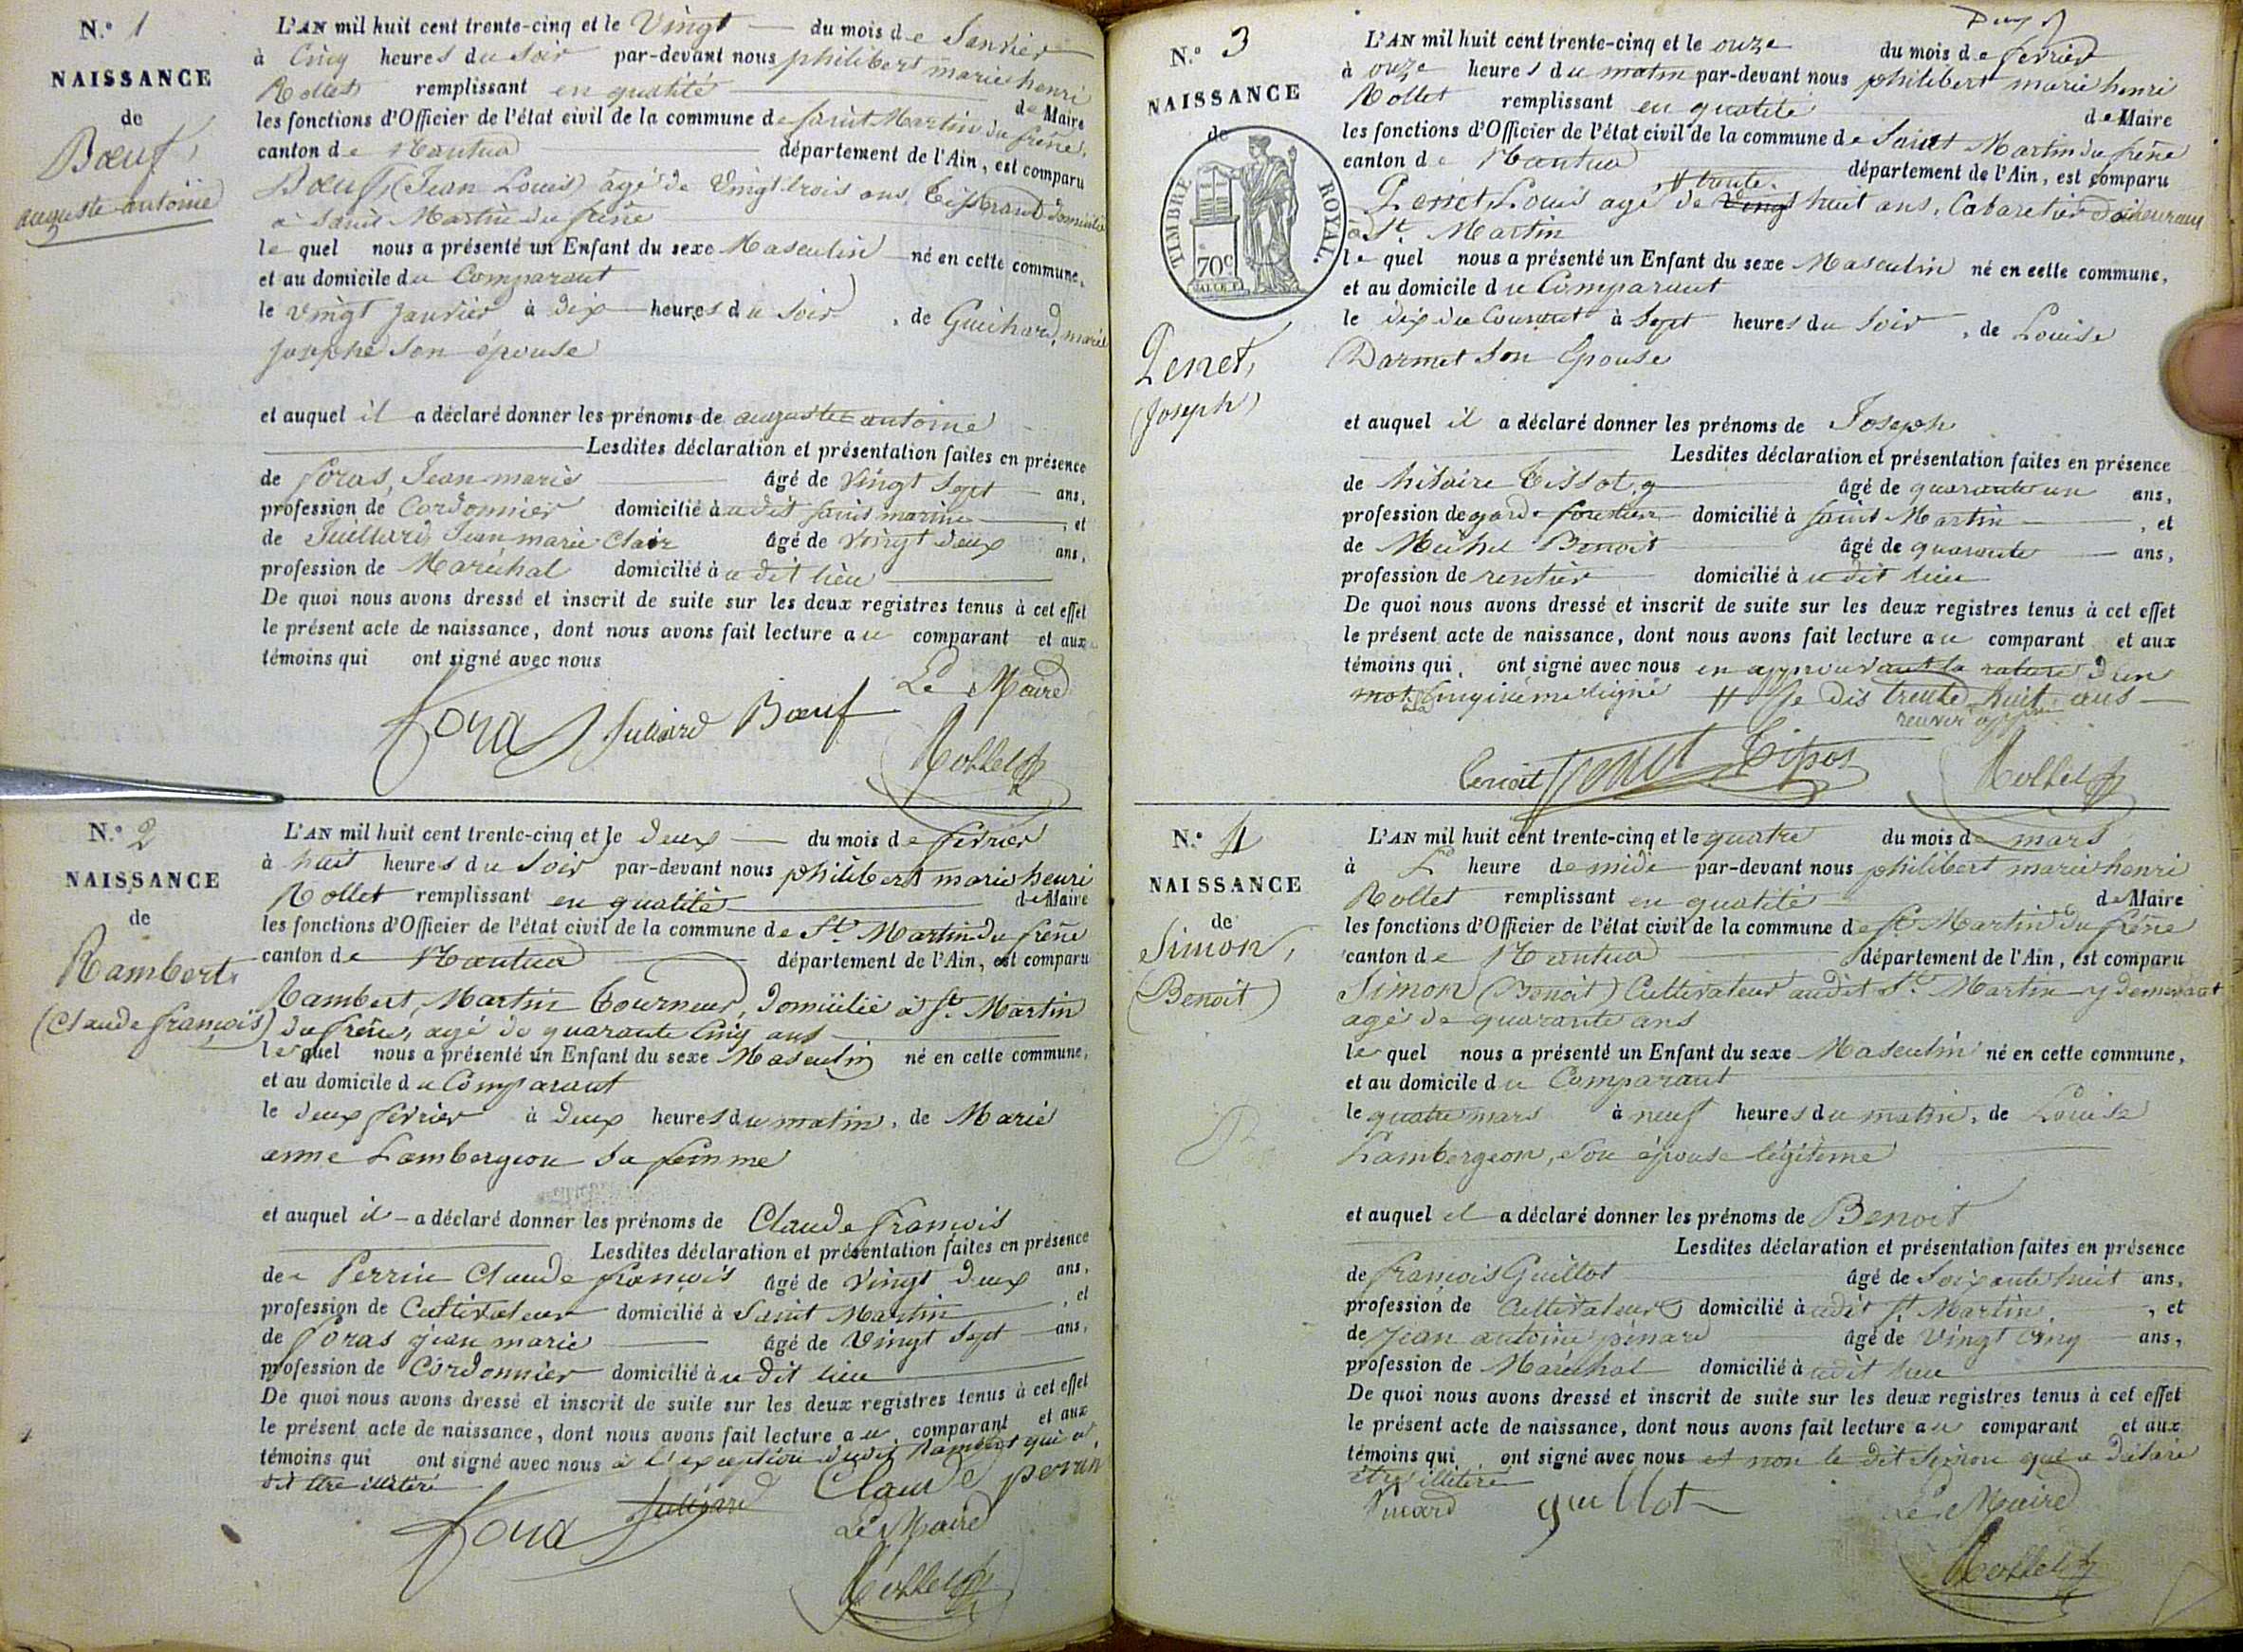 N.° 1
NAISSANCE
de
Bœuf,
auguste antoine
L'AN mil huit cent trente-cinq et le Vingt du mois de Janvier
à Cinq heures du Soir par-devant nous philibert marie henri
Rollet remplissant en qualité de Maire
les fonctions d'Officier de l'état civil de la commune de saint Martin du frêne,
canton de Nantua département de l'Ain, est comparu
Bœuf, (Jean Louis) âgé de Vingt trois ans, Tisserand domicilié
à Saint Martin du frêne
le quel nous a présenté un Enfant du sexe Masculin né en cette commune,
et au domicile du Comparant
le Vingt Janvier à dix heures du Soir, de Guichard, marie
josephe son épouse
et auquel il a déclaré donner les prénoms de auguste antoine
Lesdites déclaration et présentation faites en présence
de foras, Jean marie âgé de Vingt Sept ans,
profession de Cordonnier domicilié à udit saint martin, et
de Juillard Jean marie Clair âgé de Vingt deux ans,
profession de Maréchal domicilié à u dit lieu
De quoi nous avons dressé et inscrit de suite sur les deux registres tenus à cet effet
le présent acte de naissance, dont nous avons fait lecture au comparant et aux
témoins qui ont signé avec nous
Le Maire
foras Juliard Bœuf
Rollet
N.° 2
NAISSANCE
de
Rambert,
(Claude françois)
L'AN mil huit cent trente-cinq et le deux du mois de février
à huit heures du Soir par-devant nous philibert marie henri
Rollet remplissant en qualité de Maire
les fonctions d'Officier de l'état civil de la commune de St. Martin du frêne
canton de Nantua département de l'Ain, est comparu
Rambert, Martin Tourneur, domicilié à St. Martin
du frêne, agé de quarante Cinq ans
le quel nous a présenté un Enfant du sexe Masculin né en cette commune,
et au domicile du Comparant
le deux février à deux heures du matin, de Marie
anne Lambergeon sa femme
et auquel il a déclaré donner les prénoms de Claude françois
Lesdites déclaration et présentation faites en présence
de Perrin Claude françois âgé de Vingt deux ans,
profession de Cultivateur domicilié à Saint Martin, et
de foras jean marie âgé de Vingt Sept ans,
profession de Cordonnier domicilié à u dit lieu
De quoi nous avons dressé et inscrit de suite sur les deux registres tenus à cet effet
le présent acte de naissance, dont nous avons fait lecture au comparant et aux
témoins qui ont signé avec nous à l'exception dudit Rambert qui a
dit être illitéré
foras Juliard Claude perrin
Le Maire
Rollet
N.° 3
NAISSANCE
de
TIMBRE ROYAL.
70c
Penet,
(Joseph)
L'AN mil huit cent trente-cinq et le onze du mois de février
à onze heures du matin par-devant nous philibert marie henri
Rollet remplissant en qualité de Maire
les fonctions d'Officier de l'état civil de la commune de Saint Martin du frêne
canton de Nantua département de l'Ain, est comparu
# trente.
Penet, Louis agé de Vingt huit ans, Cabaretier demeurant
à St. Martin
le quel nous a présenté un Enfant du sexe Masculin né en cette commune,
et au domicile du Comparant
le dix du Courant à Sept heures du Soir, de Louise
Darmet Son Epouse
et auquel il a déclaré donner les prénoms de Joseph
Lesdites déclaration et présentation faites en présence
de hilaire Tissot âgé de quarante un ans,
profession de garde forestier domicilié à Saint Martin, et
de Michel Benoit âgé de quarante ans,
profession de rentier domicilié à u dit lieu
De quoi nous avons dressé et inscrit de suite sur les deux registres tenus à cet effet
le présent acte de naissance, dont nous avons fait lecture au comparant et aux
témoins qui ont signé avec nous en approuvant la rature d'un
mot cinquième ligne # Je dis trente huit ans
benoit Penet Tissot Rollet
N.° 4
NAISSANCE
de
Simon,
(Benoit)
L'AN mil huit cent trente-cinq et le quatre du mois de mars
à L heure de midi par-devant nous philibert marie henri
Rollet remplissant en qualité de Maire
les fonctions d'Officier de l'état civil de la commune de St. Martin du frêne
canton de Nantua département de l'Ain, est comparu
Simon (Benoit) Cultivateur audit St. Martin y demeurant
agé de quarante ans
le quel nous a présenté un Enfant du sexe Masculin né en cette commune,
et au domicile du Comparant
le quatre mars à neuf heures du matin, de Louise
Lambergeon, son épouse légitime
et auquel il a déclaré donner les prénoms de Benoit
Lesdites déclaration et présentation faites en présence
de françois Guillot âgé de Soixante huit ans,
profession de Cultivateur domicilié à udit St. Martin, et
de Jean antoine pinard âgé de Vingt Cinq ans,
profession de Maréchal domicilié à udit lieu
De quoi nous avons dressé et inscrit de suite sur les deux registres tenus à cet effet
le présent acte de naissance, dont nous avons fait lecture au comparant et aux
témoins qui ont signé avec nous et non le dit Simon qui a déclaré
être illitéré
Pinard guillot Le Maire
Rollet